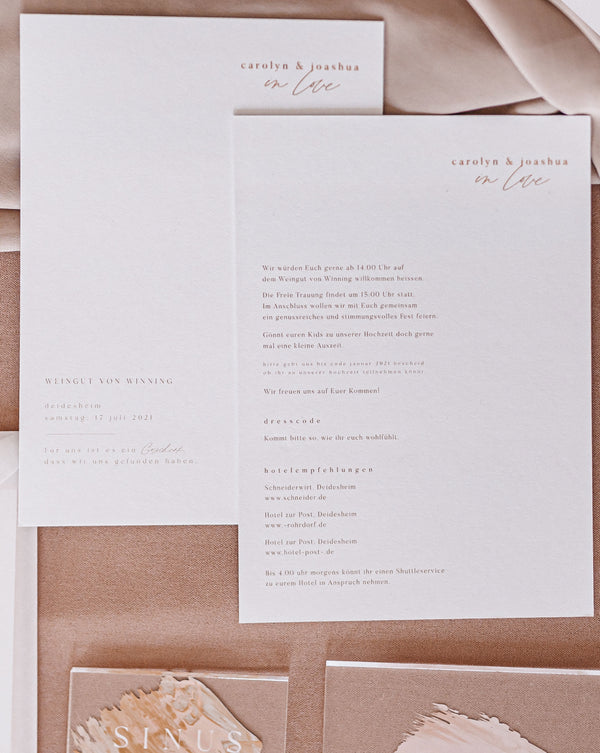 carolyn & joashua
in love
WEINGUT VON WINNING
deidesheim
samstag, 17 juli 2021
Für uns ist es ein Geschenk,
dass wir uns gefunden haben.
carolyn & joashua
in love
Wir würden Euch gerne ab 14:00 Uhr auf
dem Weingut von Winning willkommen heissen.
Die Freie Trauung findet um 15:00 Uhr statt.
Im Anschluss wollen wir mit Euch gemeinsam
ein genussreiches und stimmungsvolles Fest feiern.
Gönnt euren Kids zu unserer Hochzeit doch gerne
mal eine kleine Auszeit.
bitte gebt uns bis ende januar 2021 bescheid
ob ihr zu unserer hochzeit teilnehmen könnt
Wir freuen uns auf Euer Kommen!
dresscode
Kommt bitte so, wie ihr euch wohlfühlt.
hotelempfehlungen
Schneiderwirt, Deidesheim
www.schneider.de
Hotel zur Post, Deidesheim
www.-rohrdorf.de
Hotel zur Post, Deidesheim
www.hotel-post-.de
Bis 4:00 uhr morgens könnt ihr einen Shuttleservice
zu eurem Hotel in Anspruch nehmen.
SINUS